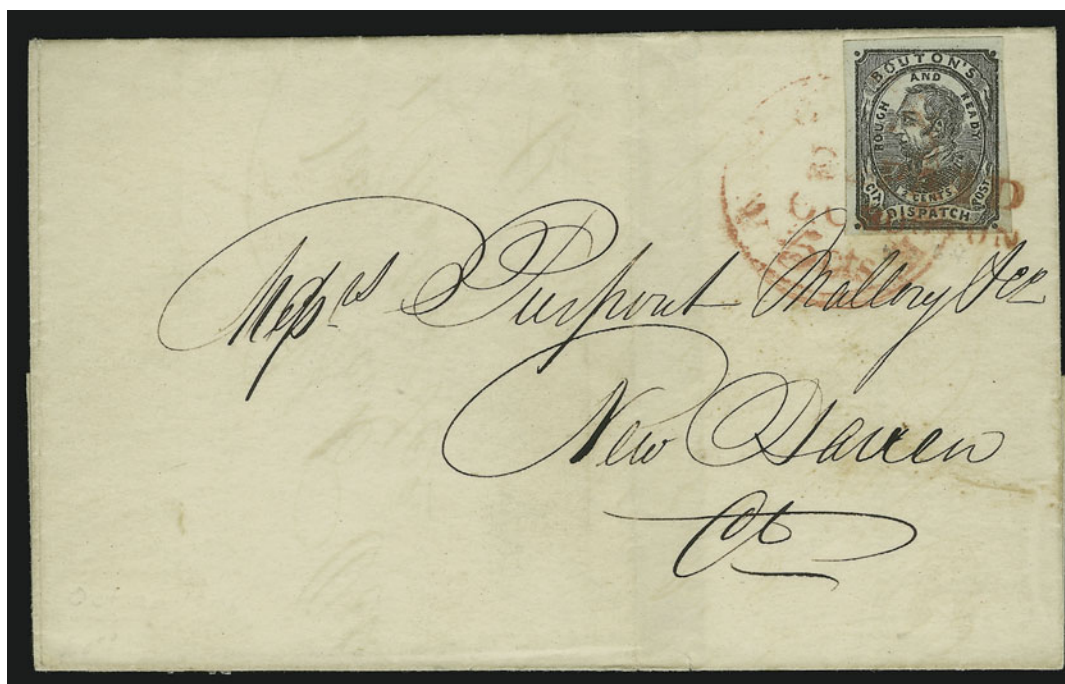 BOUTON'S
AND
ROUGH READY
2 CENTS
CITY DISPATCH POST
5 cts
Mess^rs Pierpont Mallory &Co
New Haven
Ct